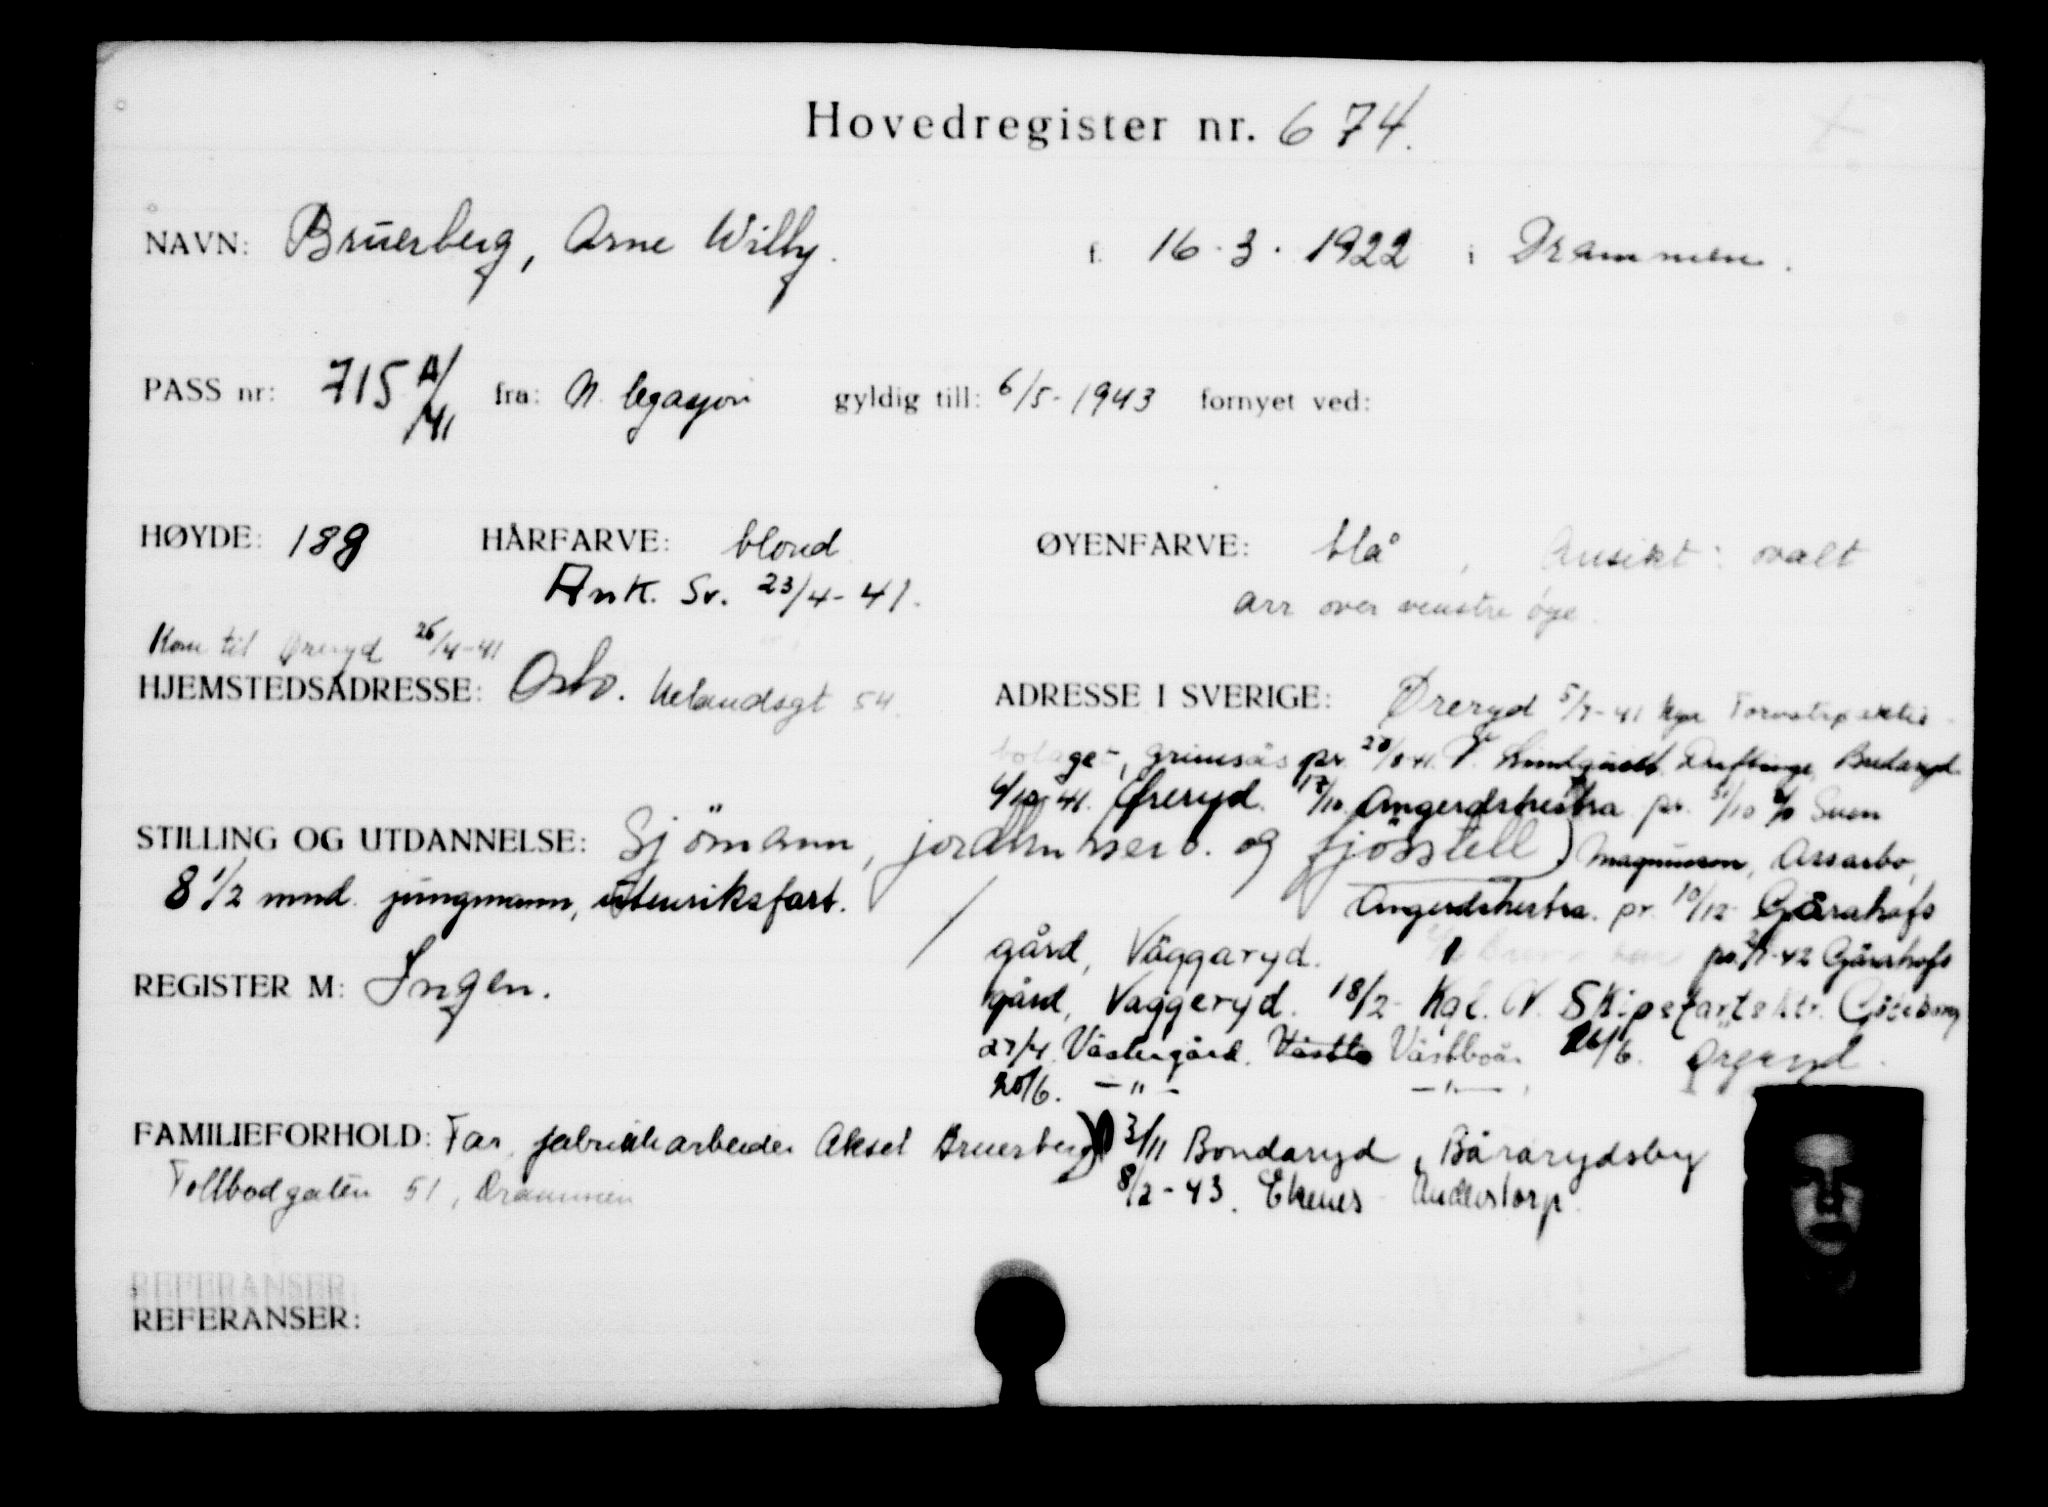 Hovedregister nr. 674.
NAVN: Bruerberg, Arne Willy. f. 16.3.1922 i Drammen.
PASS nr: 715 A/41 fra: N. legasjon gyldig till: 6/5-1943 fornyet ved:
HØYDE: 189 HÅRFARVE: blond ØYENFARVE: blå, Ansikt: ovalt
Ank. Sv. 23/4-41. arr over venstre øye.
Kom til Øreryd 25/4-41
HJEMSTEDSADRESSE: Oslo. Uelandsgt 54.
ADRESSE I SVERIGE: Øreryd 5/7-41
Grimsås pr. 28/8-41. Lindquist
6/10-41. Øreryd. 17/10 Angerdshestra pr. 31/10 Sven
Magnusson, Assarbo,
Angerdshestra. pr. 10/12 Gårahofs
gård, Väggaryd. pr. 2/1-42 Gårahofs
gård, Vaggeryd. 18/2- Kgl. N. Skipsfartsktr. Göteborg
27/4. Västergård. Västbo 16/6. Öreryd.
20/6. -"- -"-
3/11 Bondaryd, Bårarydsby
8/2-43. Ekenes Anderstorp.
STILLING OG UTDANNELSE: Sjömann, jordbruksarb. og fjösstell
8 1/2 mnd. jungmann, utenriksfart.
REGISTER M: Ingen.
FAMILIEFORHOLD: Far, fabrikkarbeider Aksel Bruerberg
Tollbodgaten 51, Drammen
REFERANSER:
REFERANSER: